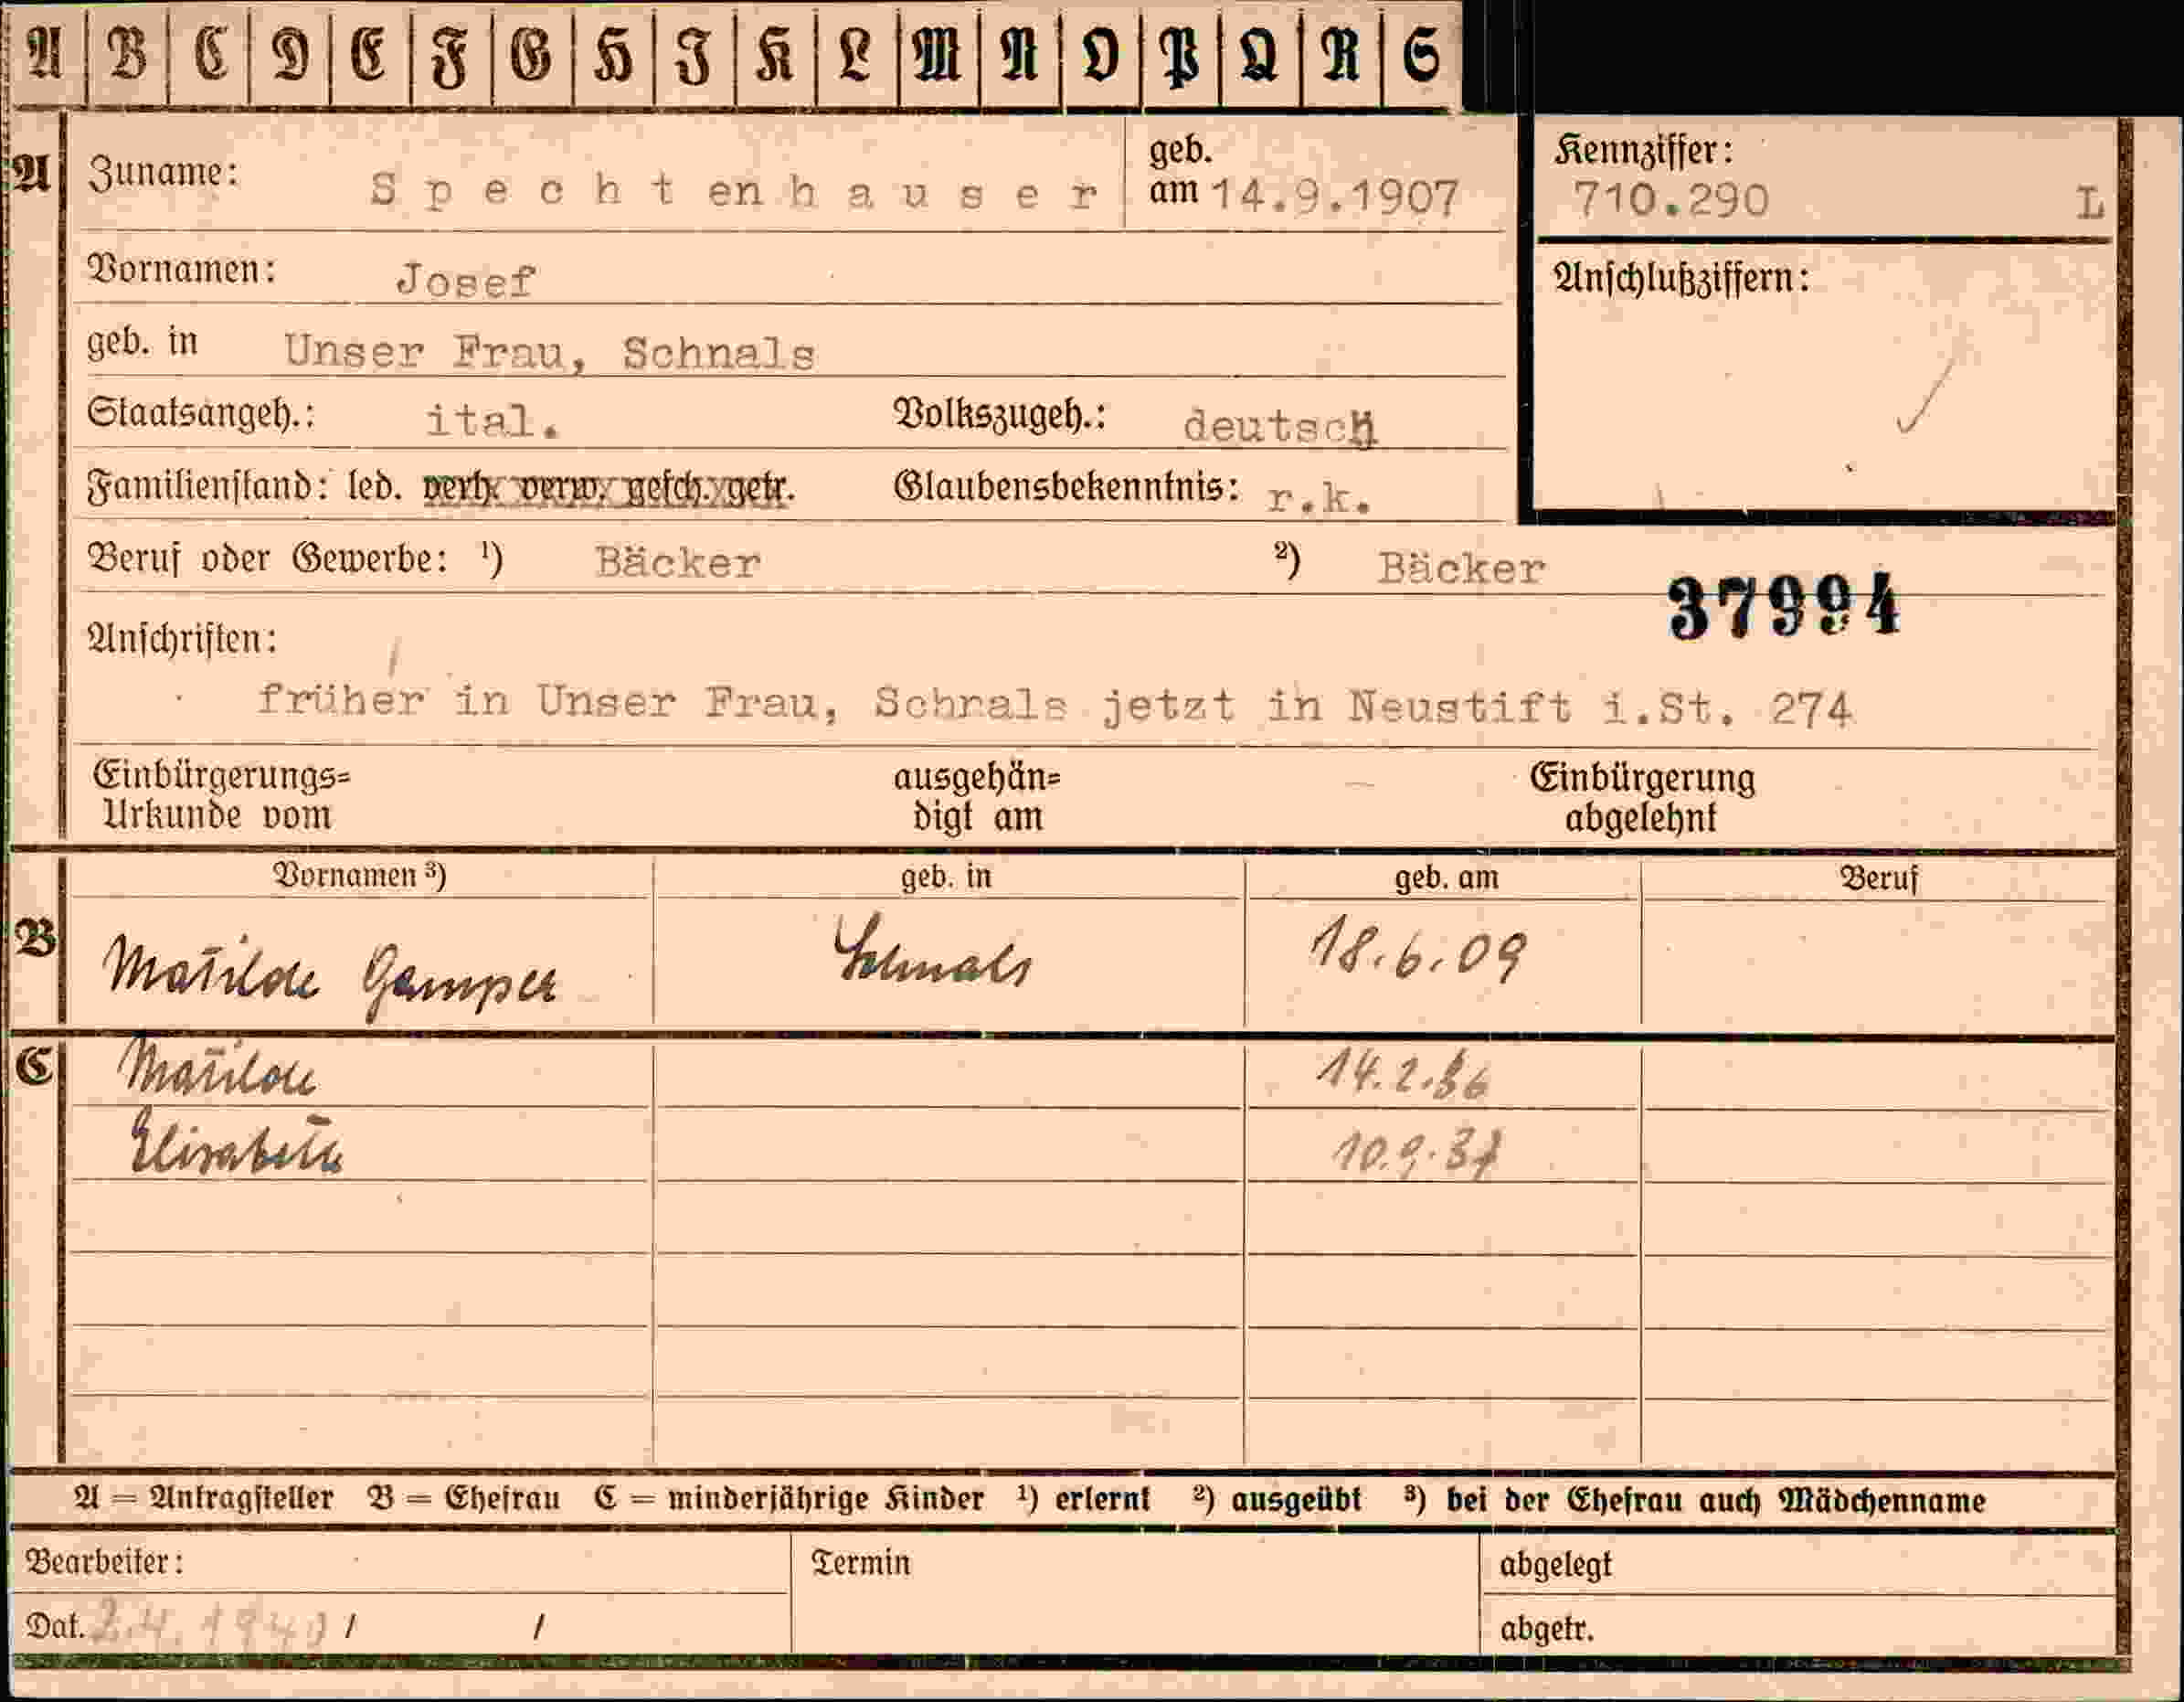 A B C D E F G H I K L M N O P Q R S
A Zuname: Spechtenhauser geb. am 14.9.1907
Kennziffer: 710.290 L
Vornamen: Josef
Anschlußziffern:
geb. in Unser Frau, Schnals
Staatsangeh.: ital. Volkszugeh.: deutsch
Familienstand: led. verh. verw. gesch. getr. Glaubensbekenntnis: r.k.
Beruf oder Gewerbe: ¹) Bäcker ²) Bäcker
37994
Anschriften:
früher in Unser Frau, Schnals jetzt in Neustift i.St. 274
Einbürgerungs= ausgehän= Einbürgerung
Urkunde vom digt am abgelehnt
Vornamen ³) geb. in geb. am Beruf
B Matilde Gamper Schnals 18.6.09
C Matilde 14.2.36
Elisabeth 10.9.37
A = Antragsteller B = Ehefrau C = minderjährige Kinder ¹) erlernt ²) ausgeübt ³) bei der Ehefrau auch Mädchenname
Bearbeiter: Termin abgelegt
Dat. 2.4.1940 / / abgetr.